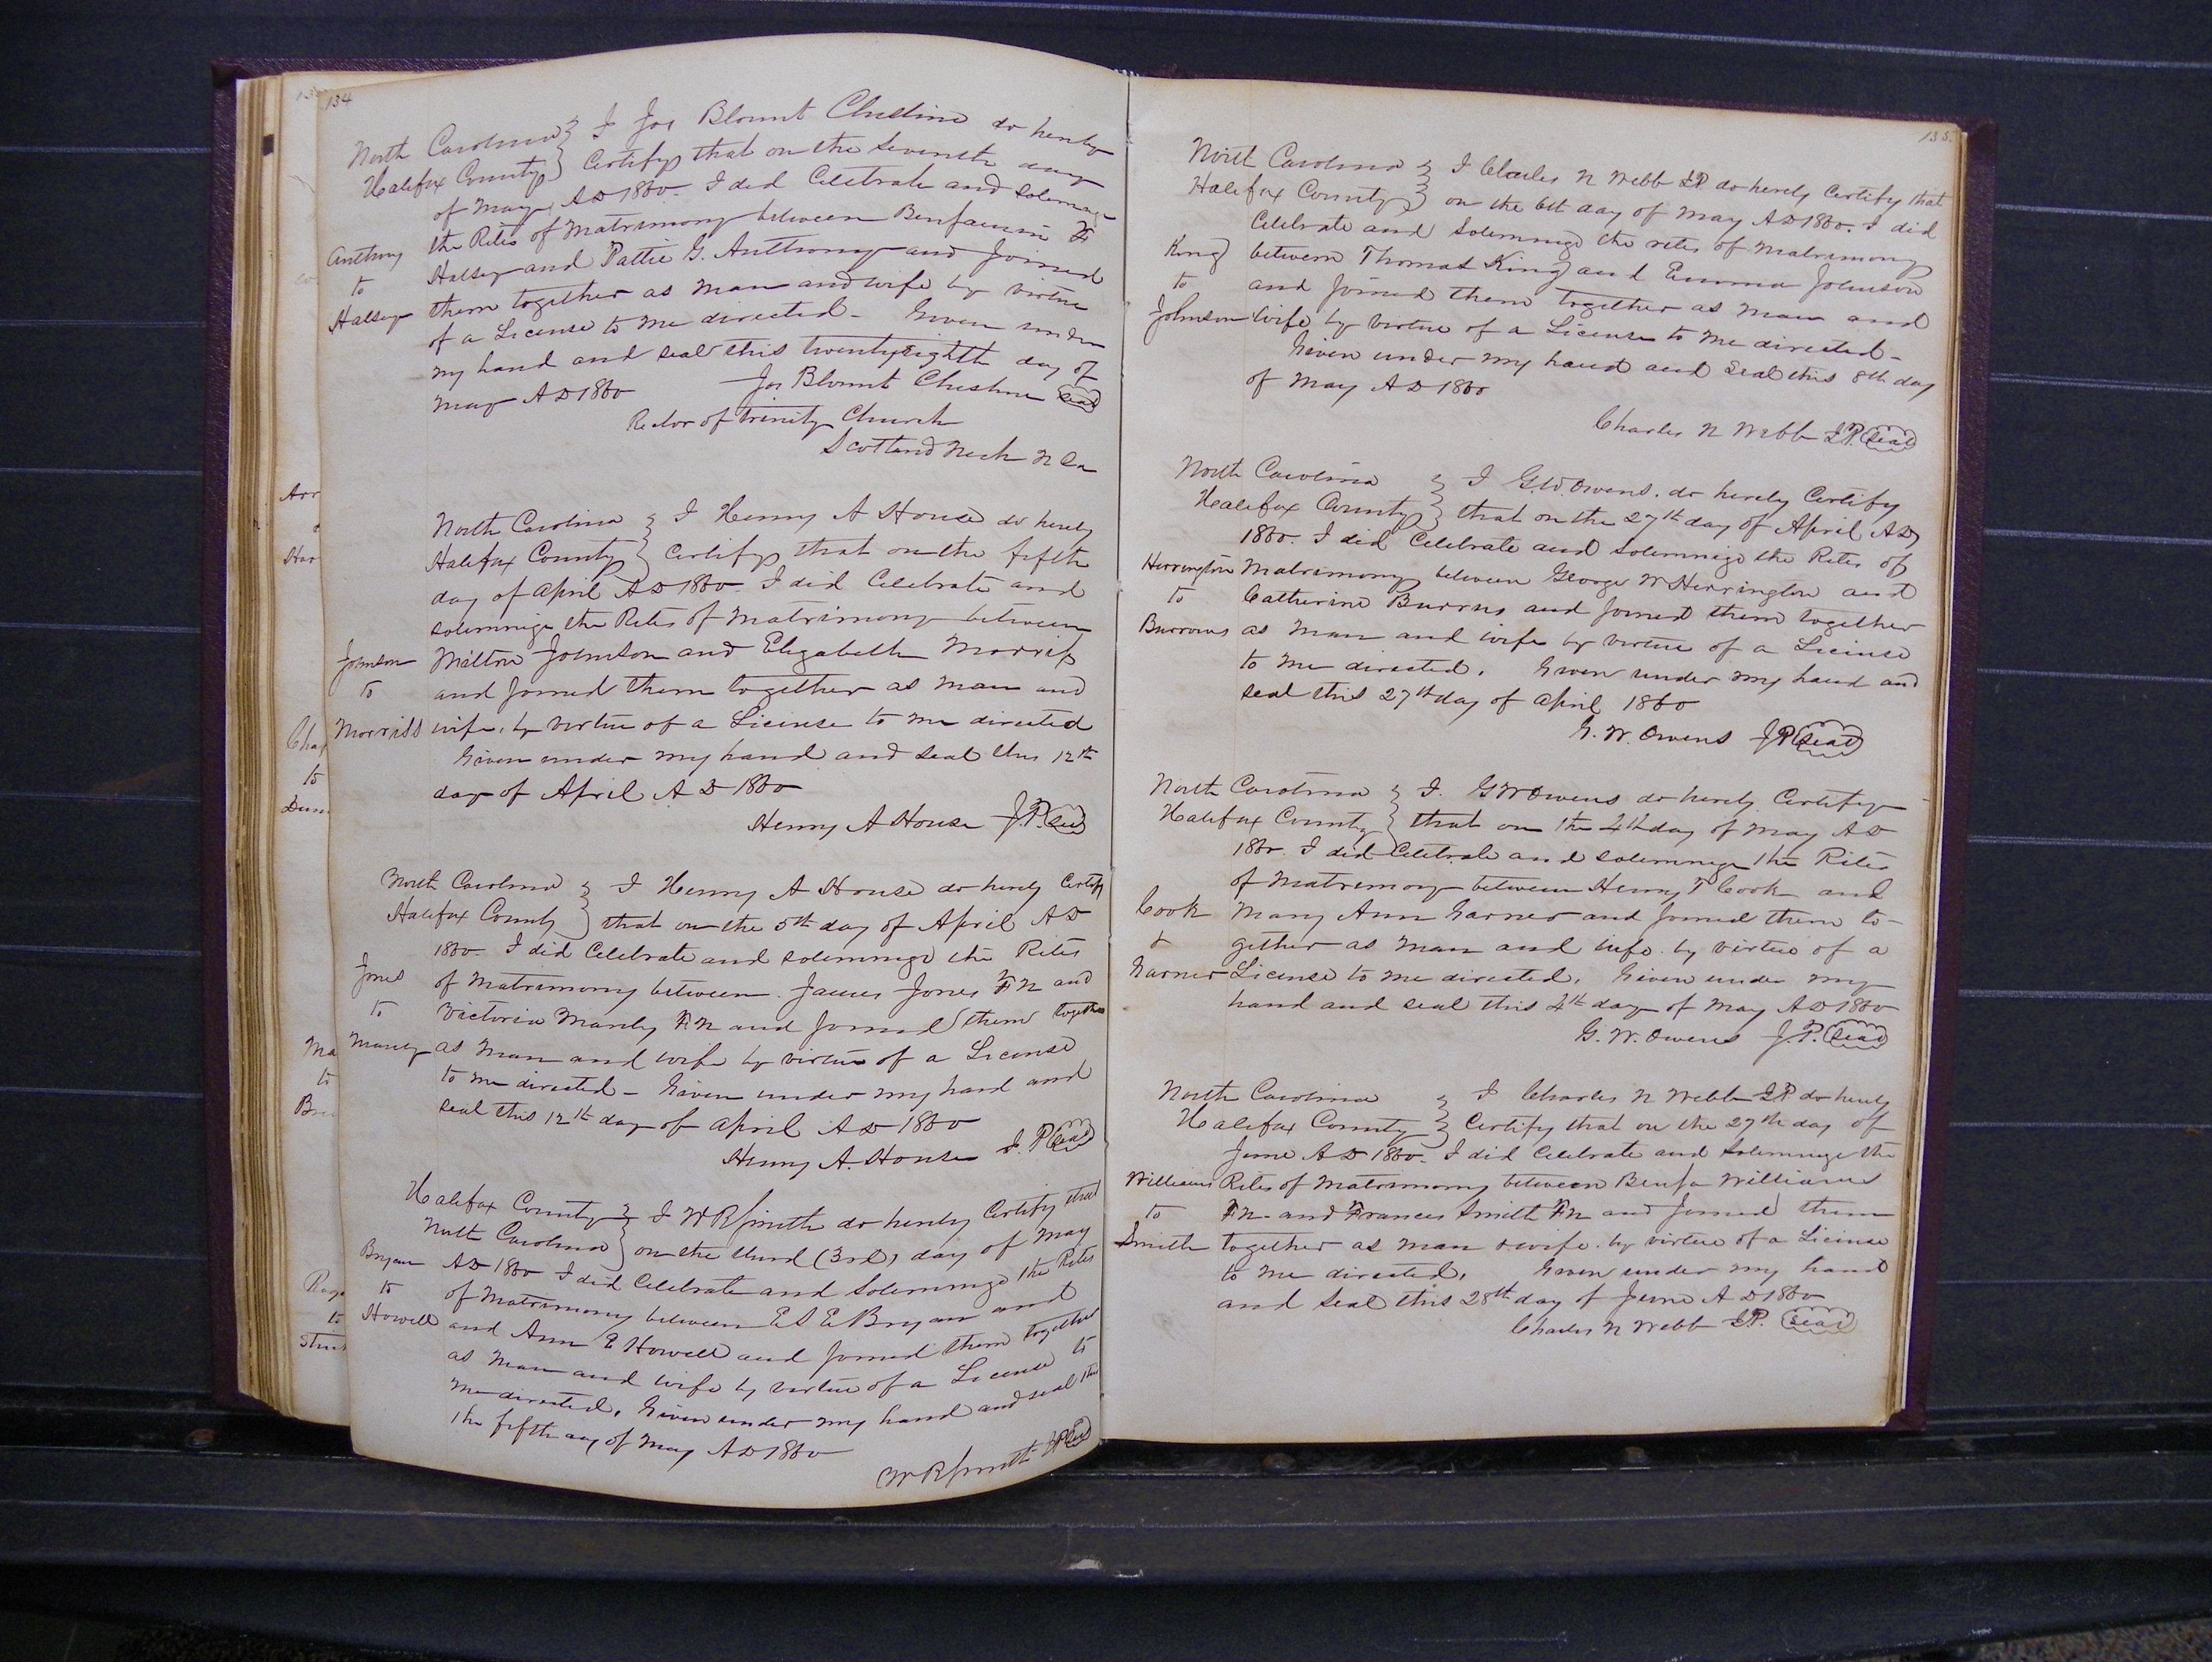 134
North Carolina } I Jos Blount Cheshire do hereby
Halifax County } Certify that on the Seventh day
of May AD 1860. I did Celebrate and solemnize
the Rites of Matrimony between Benjamin F
Anthony to Halsey
Halsey and Pattie G. Anthony and Joined
them together as Man and wife by virtue
of a License to me directed - Given under
my hand and seal this twentyeighth day of
May AD 1860 Jos Blount Cheshire Seal
Rector of Trinity Church
Scotland Neck N Ca
North Carolina } I Henry A House do hereby
Halifax County } Certify that on the fifth
day of April AD 1860. I did Celebrate and
solemnize the Rites of Matrimony between
Johnson to Morriss
Milton Johnson and Elizabeth Morriss
and Joined them together as Man and
wife, by virtue of a License to me directed
Given under my hand and seal this 12th
day of April AD 1860
Henry A House J.P. Seal
North Carolina } I Henry A House do hereby Certify
Halifax County } that on the 5th day of April AD
1860. I did Celebrate and solemnize the Rites
Jones to Manly
of Matrimony between James Jones F N and
Victoria Manly F. N and Joined them together
as Man and wife by virtue of a License
to me directed - Given under my hand and
seal this 12th day of April AD 1860
Henry A. House J. P Seal
Halifax County } I W R Smith do hereby Certify that
North Carolina } on the third (3rd) day of May
Bryan to Howell
AD 1860 I did Celebrate and Solemnize the Rites
of Matrimony between E S E Bryan and
and Ann E Howell and Joined them together
as Man and wife by virtue of a License to
me directed. Given under my hand and seal this
the fifth day of May AD 1860
W R Smith JP Seal
135.
North Carolina } I Charles N Webb JP do hereby Certify that
Halifax County } on the 6th day of May AD 1860. I did
Celebrate and Solemnize the rites of Matrimony
King to Johnson
between Thomas King and Emma Johnson
and Joined them together as Man and
wife by virtue of a License to me directed -
Given under my hand and Seal this 8th day
of May AD 1860
Charles N Webb JP. Seal
North Carolina } I G.W. Owens. do hereby Certify
Halifax County } that on the 27th day of April AD
1860. I did Celebrate and solemnize the Rites of
Herrington to Burrows
Matrimony between George W Herrington and
Catherine Burrus and Joined them together
as Man and wife by virtue of a License
to me directed. Given under my hand and
seal this 27th day of April 1860
G. W. Owens JP Seal
North Carolina } I. G W Owens do hereby Certify
Halifax County } that on the 4th day of May AD
1860. I did Celebrate and solemnize the Rites
of Matrimony between Henry T Cook and
Cook & Garner
Mary Ann Garner and Joined them to-
gether as Man and wife. by virtue of a
License to me directed. Given under my
hand and seal this 4th day of May AD 1860
G. W. Owens J.P. Seal
North Carolina } I Charles N Webb JP do hereby
Halifax County } Certify that on the 27th day of
June AD 1860. I did Celebrate and Solemnize the
Williams to Smith
Rites of Matrimony between Benja Williams
F. N. and Frances Smith F N and Joined them
together as Man & wife. by virtue of a License
to me directed. Given under my hand
and Seal this 28th day of June AD 1860
Charles N Webb JP. Seal